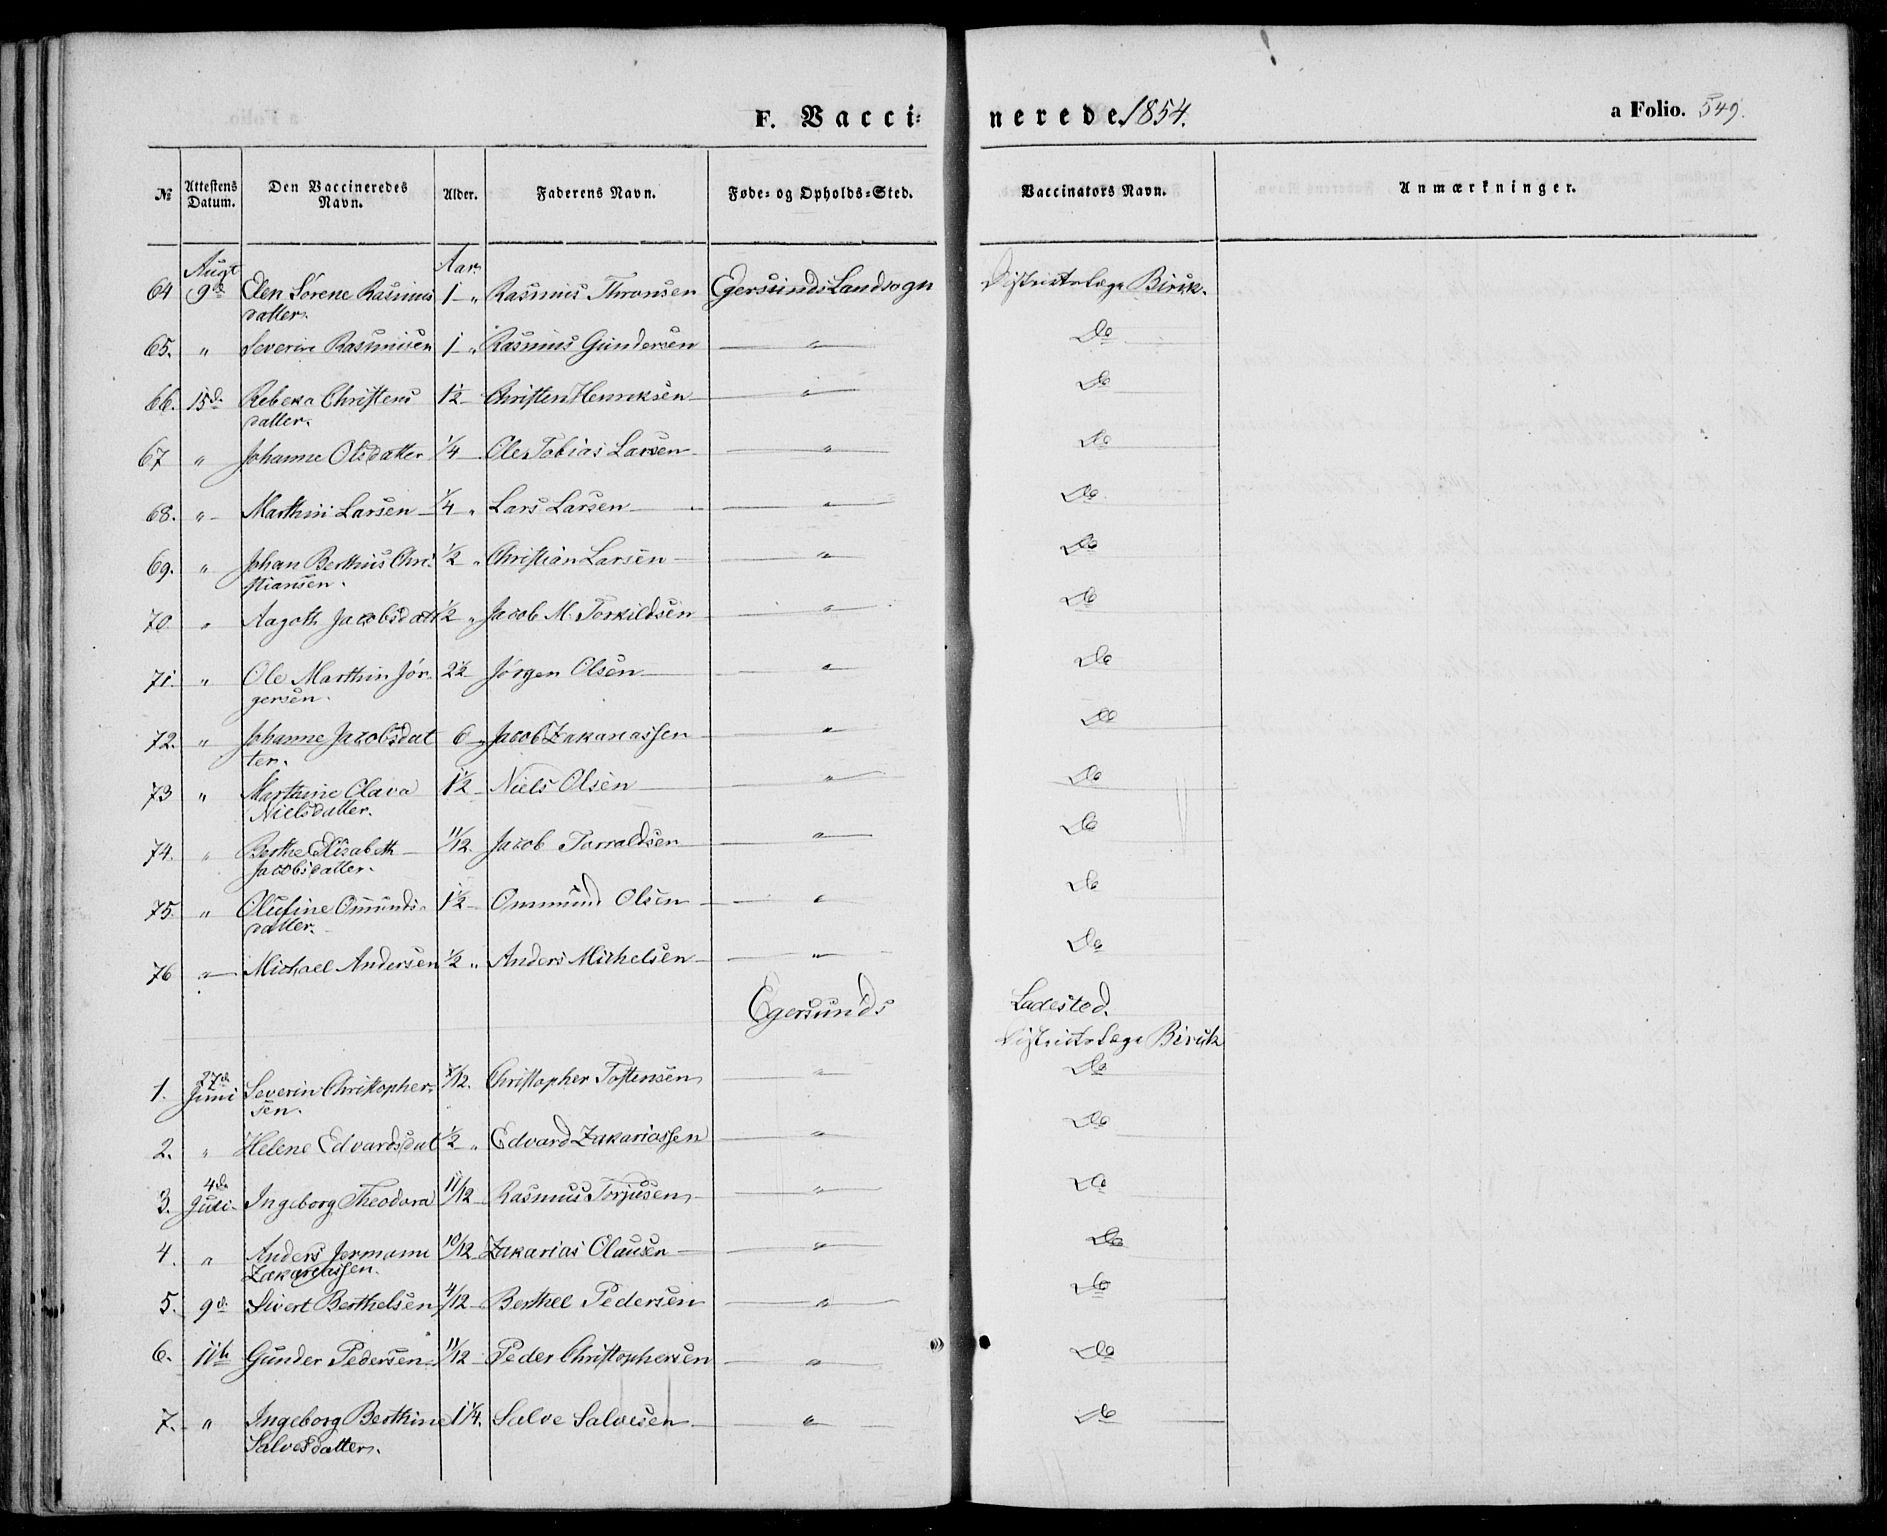 F. Vaccinerede 1854. a Folio. 549.
№ Attestens Datum. Den Vaccineredes Navn. Alder. Faderens Navn. Føde- og Opholds-Sted. Vaccinators Navn. Anmærkninger.
Augt Aar
64 9de Elen Sørene Rasmus 1 - " Rasmus Thronsen Egersunds Landsogn Districtslæge Birck.
datter.
65. " Severin Rasmusen 1 - " Rasmus Gundersen " Do
66. 15d. Rebeka Christens 1½ - Christen Henriksen " Do
datter.
67 " Johanne Olsdatter 1/4 Ole Tobias Larsen " Do
68. " Marthin Larsen 1/4 " Lars Larsen " Do
69. " Johan Berthius Chri- 1/2 " Christian Larsen " Do
stiansen.
70. " Aagoth Jacobsdatt 1/2 " Jacob M. Torkildsen " Do
71. " Ole Marthin Jör- 2½ Jörgen Olsen " Do
gersen.
72. " Johanne Jacobsdat 6 - " Jacob Zakariassen " Do
ter.
73 " Marthine Olava 1½ Niels Olsen " Do
Nielsdatter.
74. " Berthe Elisabeth 11/12. Jacob Torvaldsen " Do
Jacobsdatter.
75. " Olufine Omunds- 1½ Ommund Olsen " Do
datter.
76 " Michael Andersen 1/2 " Anders Michelsen " Do
Egersunds Ladested.
Districtslæge Birck
1. 27d Juni Severin Christopher- /12. Christopher Tostensen " Do
sen.
2. " Helene Edvardsdat 1/2 " Edvard Zakariassen " Do
3. 4de Juli Ingeborg Theodora 11/12 Rasmus Torjusen " Do
4. " Anders Jermann 10/12 Zakarias Olausen " Do
Zakariassen.
5. 9d. Sivert Berthelsen 4/12 Berthel Pedersen " Do
6. 11te Gunder Pedersen 11/12 Peder Christophersen " Do
7. " Ingeborg Berthine 1¼. Salve Salvesen " Do
Salvesdatter.